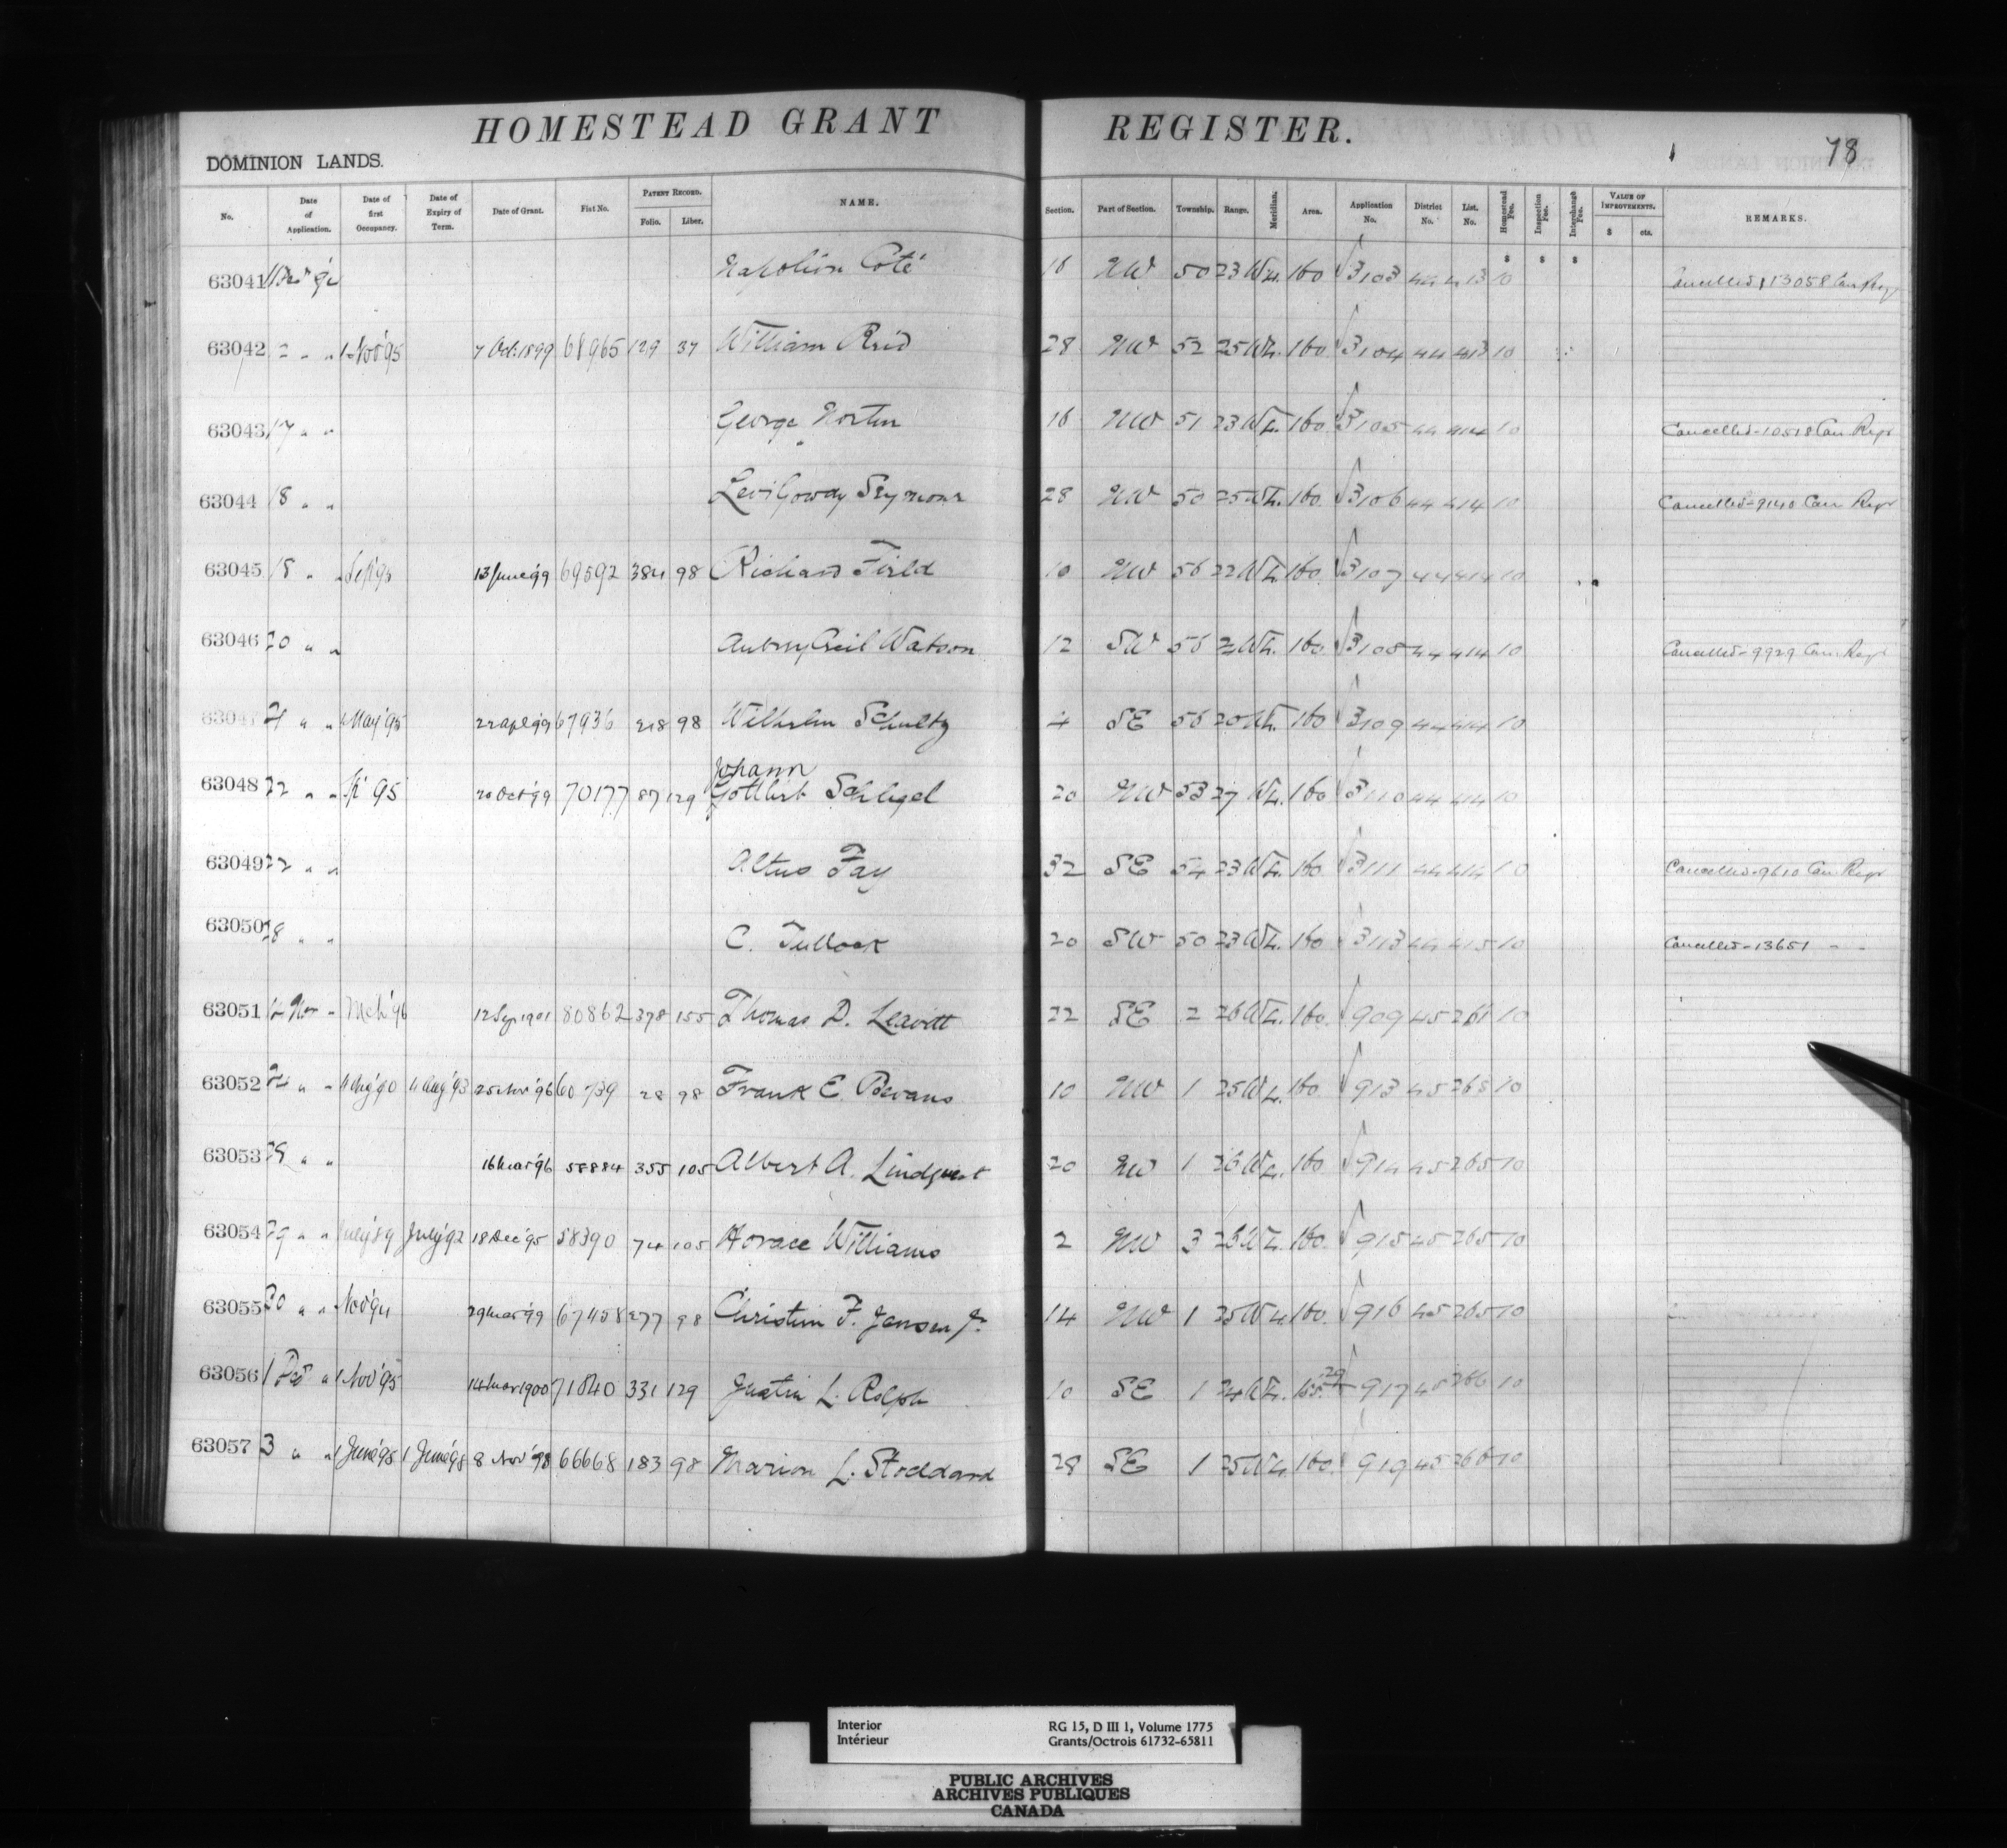 HOMESTEAD GRANT REGISTER.
78
DOMINION LANDS.
No. Date of Application. Date of first Occupancy. Date of Expiry of Term. Date of Grant. Fiat No. PATENT RECORD. Folio. Liber. NAME. Section. Part of Section. Township. Range. Meridian. Area. Application No. District No. List. No. Homestead Fee. Inspection Fee. Interchange Fee. VALUE OF IMPROVEMENTS. $ cts. REMARKS.
$ $ $
63041 Napoléon Coté 16 NW 50 23 W4. 160 3103 44 413 10 Cancelled 13058 Can Regr
63042 " " 1 Nov '95 7 Oct. 1899 68965 129 37 William Reid 28 NW 52 25 W4. 160 3104 44 413 10
63043 17 " " George Norton 16 NW 51 23 W4. 160 3105 44 414 10 Cancelled-10518 Can Regr
63044 18 " " Levi Seymour 28 NW 50 25 W4. 160 3106 44 414 10 Cancelled-9140 Can Regr
63045 18 " " 13 June '99 69592 384 98 Richard Field 10 NW 56 22 W4. 160 3107 44 414 10
63046 20 " " Aubrey Cecil Watson 12 SW 56 W4. 160 3108 44 414 10 Cancelled-9929 Can Regr
63047 21 " " May '95 22 Apl '99 67936 218 98 Wilhelm Schultz 4 SE 56 20 W4. 160 3109 44 414 10
63048 22 " " '95 20 Oct '99 70177 87 129 Johann Gottlieb Schlegel 20 NW 53 27 W4. 160 3110 44 414 10
63049 22 " " Altus Fay 32 SE 54 23 W4. 160 3111 44 414 10 Cancelled-9610 Can Regr
63050 28 " " C. Tullock 20 SW 50 23 W4. 160 3113 44 415 10 Cancelled-13651 " "
63051 Nov " Mch '96 12 Sep 1901 80862 378 155 Thomas D. Leavitt 22 SE 2 26 W4. 160 909 45 261 10
63052 " " 11 Aug '90 11 Aug '93 25 Nov '96 60739 28 98 Frank E. Bevans 10 NW 1 25 W4. 160 913 45 265 10
63053 " " 16 Mar '96 58884 355 105 Albert A. Lindquist 20 NW 1 26 W4. 160 914 45 265 10
63054 29 " " July '89 July '92 18 Dec '95 58390 74 105 Horace Williams 2 NW 3 W4. 160 915 45 265 10
63055 30 " " Nov '94 29 Mar '99 67458 277 98 Christian F. Jensen Jr. 14 NW 1 25 W4 160. 916 45 265 10
63056 1 Dec " 1 Nov '95 14 Mar 1900 71840 331 129 Justin L. Rolph 10 SE 1 24 W4. 917 45 266 10
63057 3 " " 1 June '95 1 June '98 8 Nov '98 66668 183 98 Marion L. Stoddard 28 SE 1 25 W4. 160. 919 45 266 10
Interior RG 15, D III 1, Volume 1775
Intérieur Grants/Octrois 61732-65811
PUBLIC ARCHIVES
ARCHIVES PUBLIQUES
CANADA